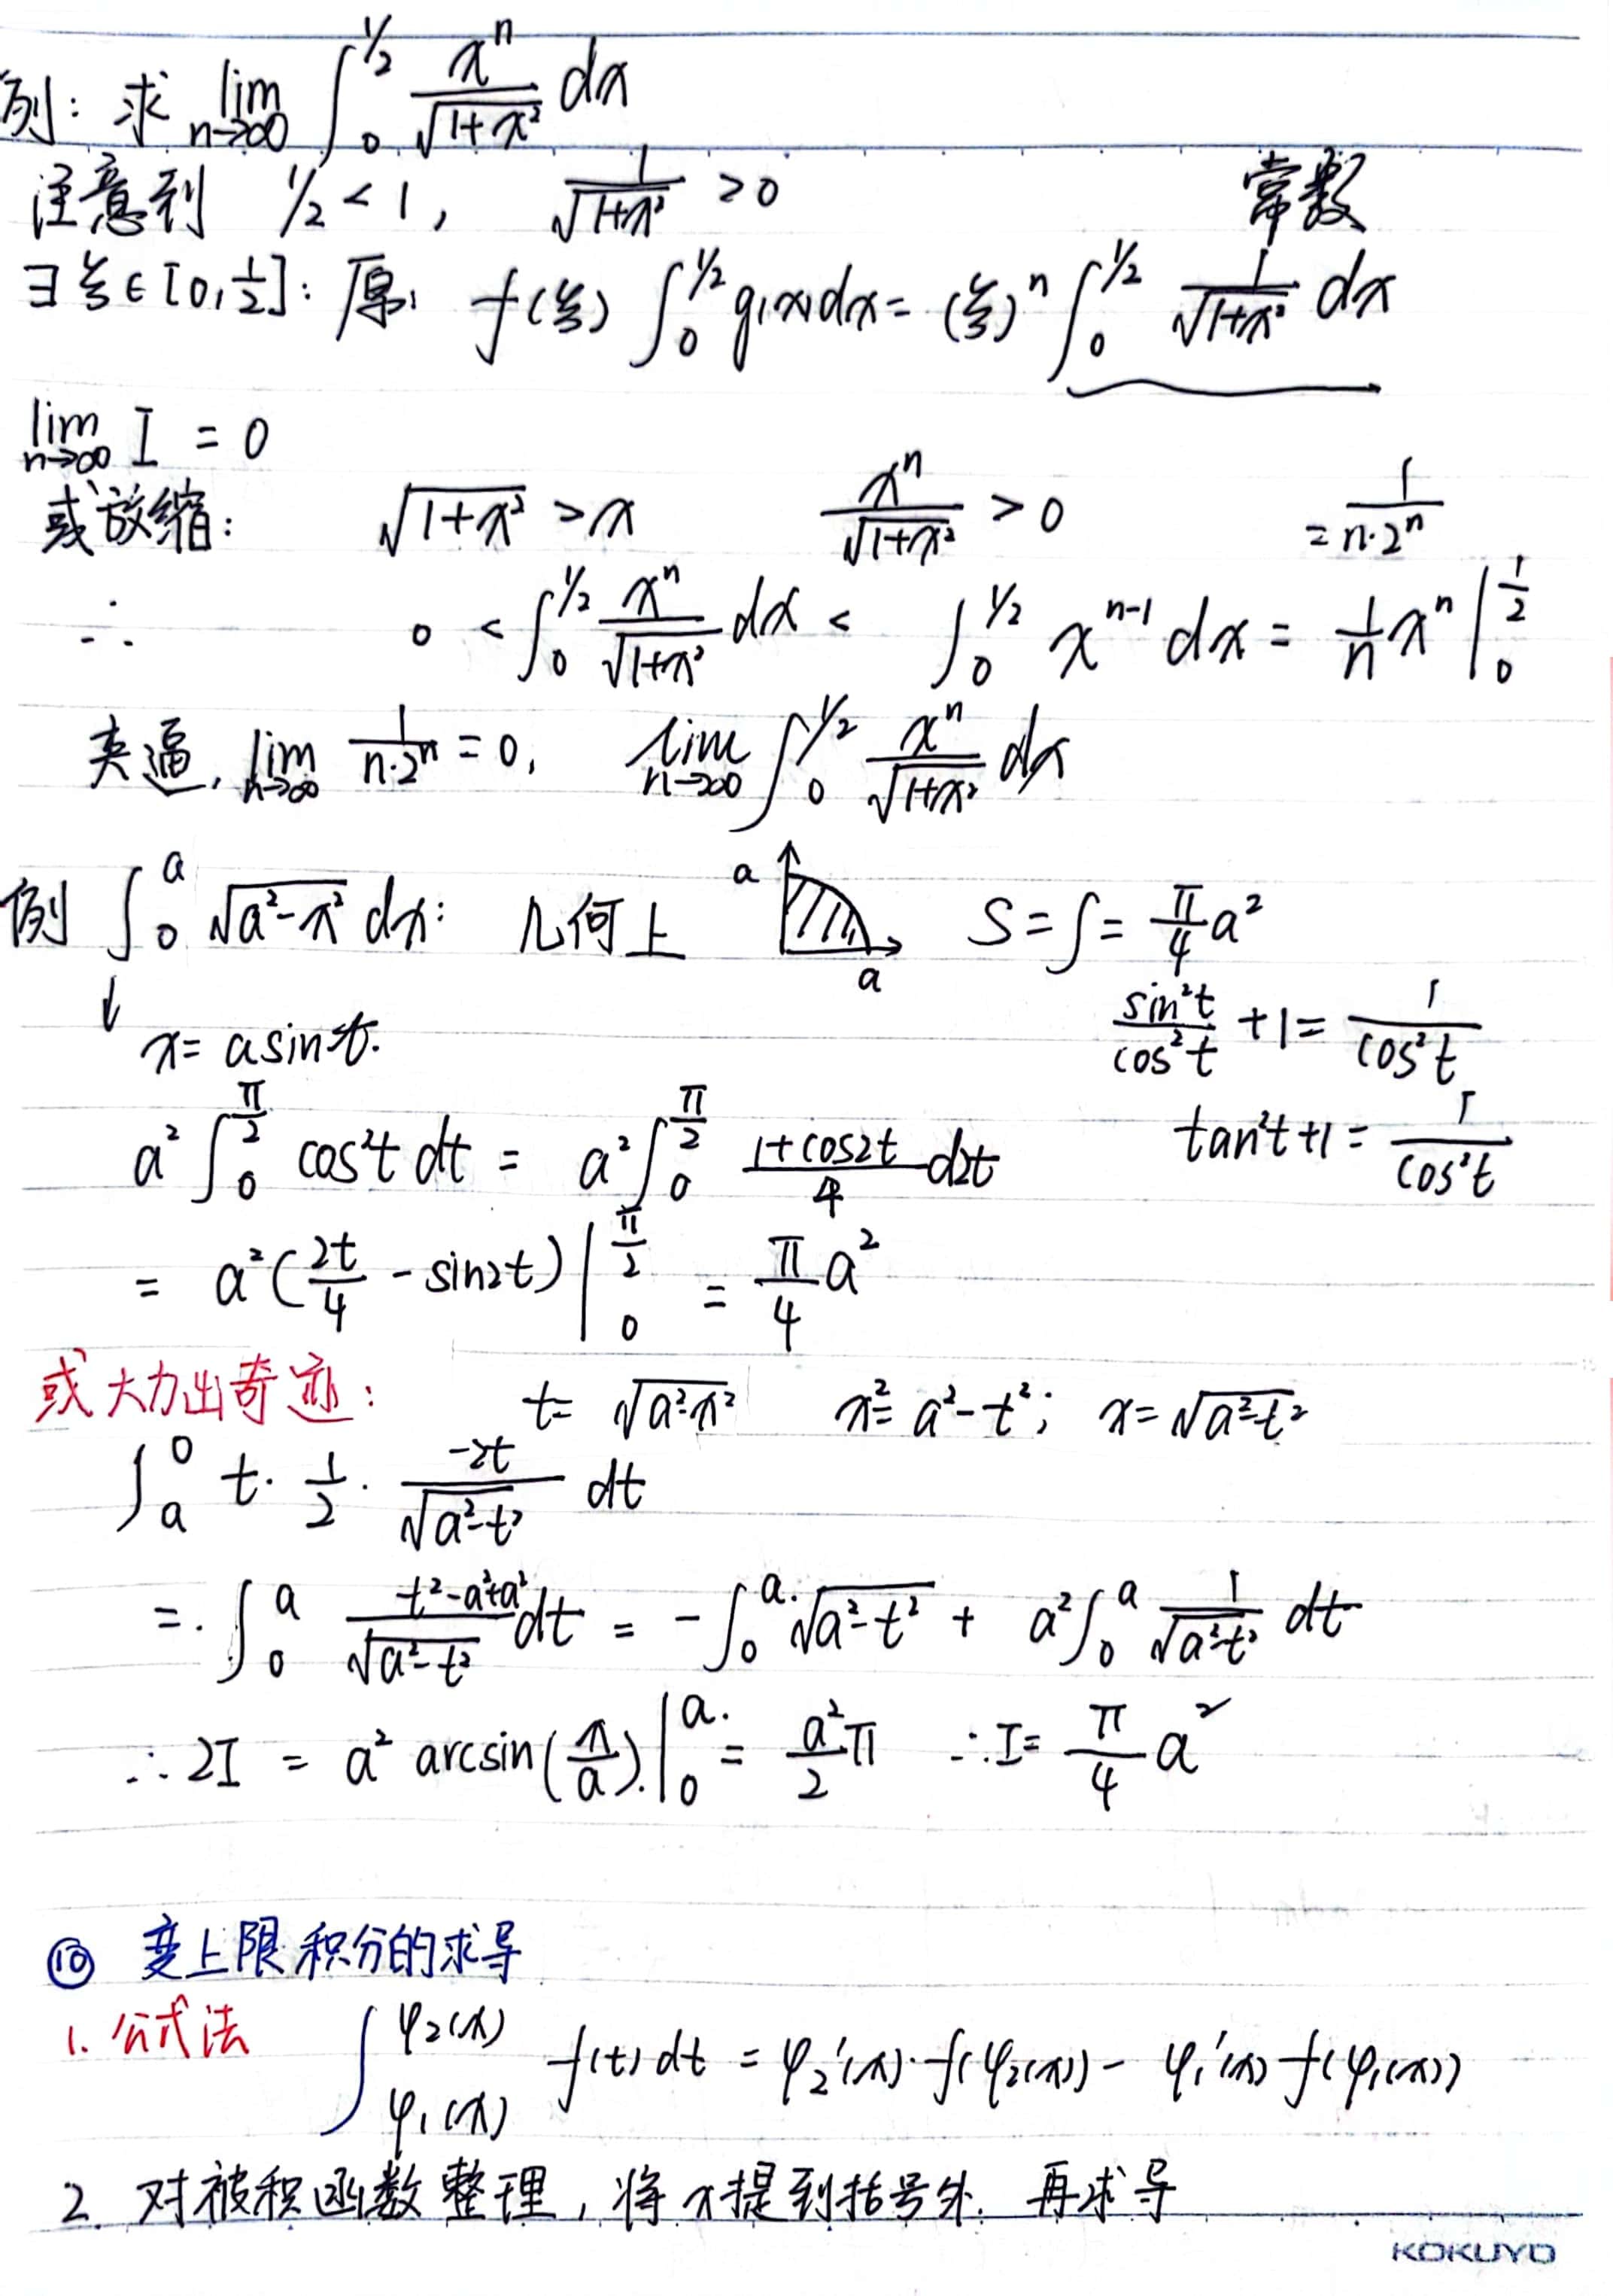 例: 求 lim n→∞ ∫₀^{1/2} xⁿ/√(1+x²) dx
注意到 1/2 < 1, 1/√(1+x²) > 0 常数
∃ ξ ∈ [0, 1/2]: 原: f(ξ) ∫₀^{1/2} g(x) dx = (ξ)ⁿ ∫₀^{1/2} 1/√(1+x²) dx
lim n→∞ I = 0
或放缩: √(1+x²) > x xⁿ/√(1+x²) > 0 = 1/(n·2ⁿ)
∴ 0 < ∫₀^{1/2} xⁿ/√(1+x²) dx < ∫₀^{1/2} x^{n-1} dx = 1/n xⁿ |₀^{1/2}
夹逼, lim n→∞ 1/(n·2ⁿ) = 0, lim n→∞ ∫₀^{1/2} xⁿ/√(1+x²) dx
例 ∫₀^a √(a²-x²) dx: 几何上 a a S = ∫ = π/4 a²
↓ x = a sin t. sin²t/cos²t + 1 = 1/cos²t
a² ∫₀^{π/2} cos²t dt = a² ∫₀^{π/2} (1+cos2t)/4 d2t tan²t + 1 = 1/cos²t
= a² (2t/4 - sin2t) |₀^{π/2} = π/4 a²
或大力出奇迹: t = √(a²-x²) x² = a²-t²; x = √(a²-t²)
∫ₐ^0 t · 1/2 · -2t/√(a²-t²) dt
= ∫₀^a (t²-a²+a²)/√(a²-t²) dt = -∫₀^a √(a²-t²) + a² ∫₀^a 1/√(a²-t²) dt
∴ 2I = a² arcsin(x/a) |₀^a = a²/2 π ∴ I = π/4 a²
⑩ 变上限积分的求导
1. 公式法 ∫_{φ₁(x)}^{φ₂(x)} f(t) dt = φ₂'(x)·f(φ₂(x)) - φ₁'(x) f(φ₁(x))
2. 对被积函数整理, 将x提到括号外. 再求导
KOKUYO